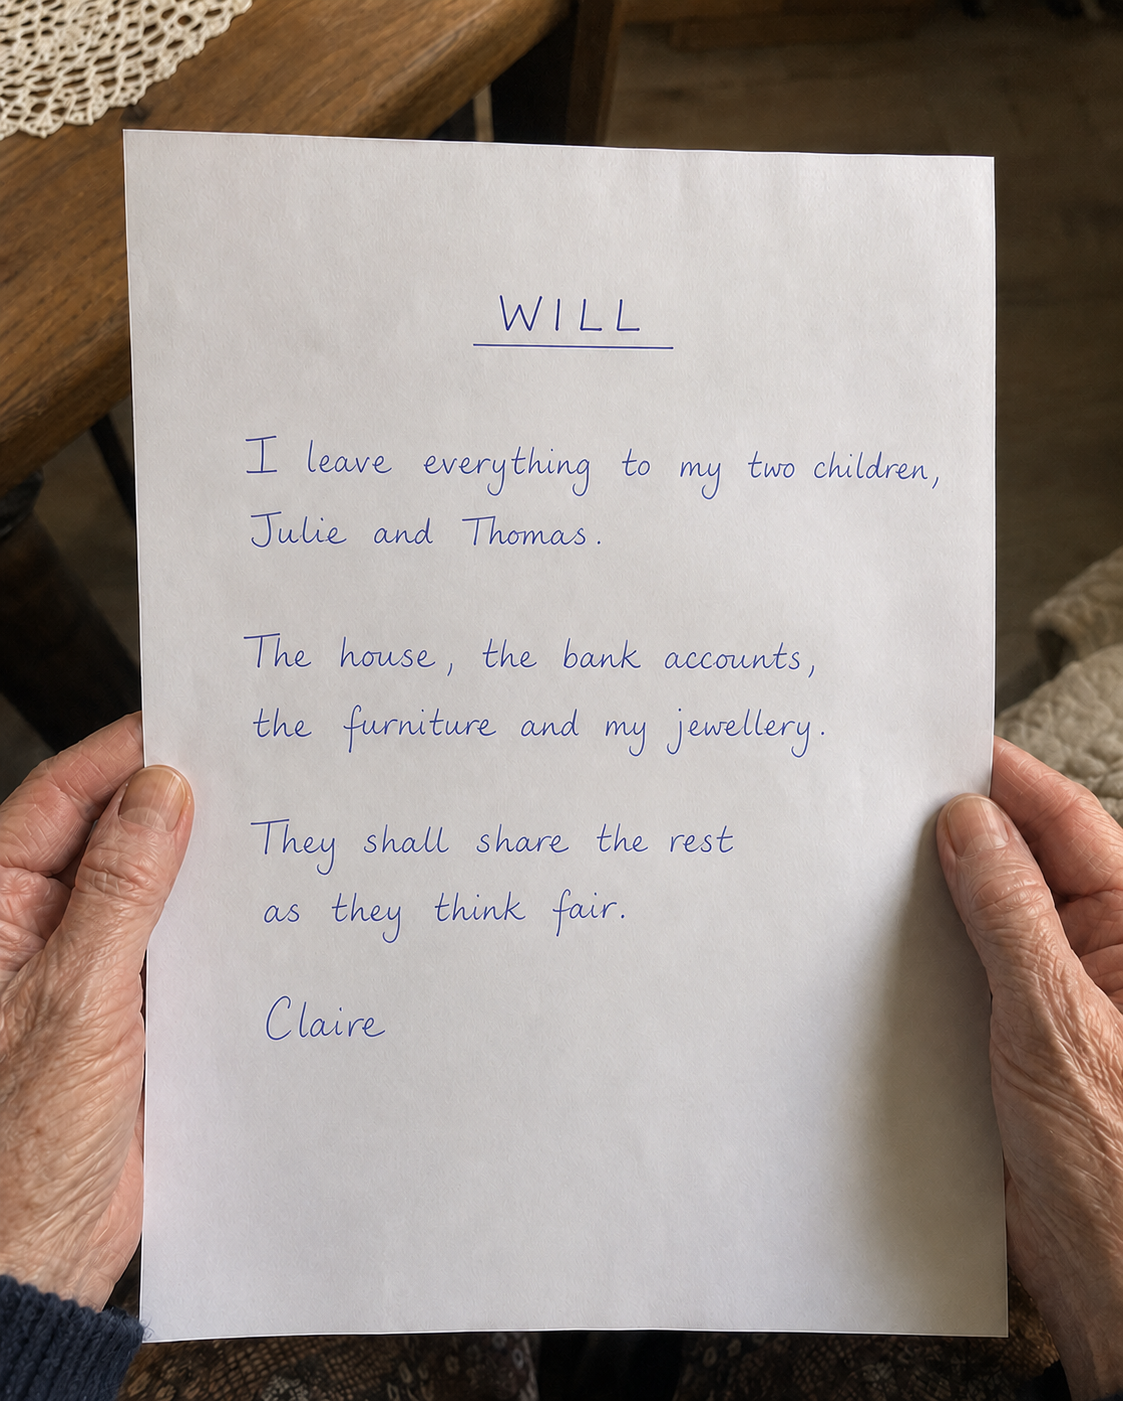 WILL
I leave everything to my two children,
Julie and Thomas.
The house, the bank accounts,
the furniture and my jewellery.
They shall share the rest
as they think fair.
Claire